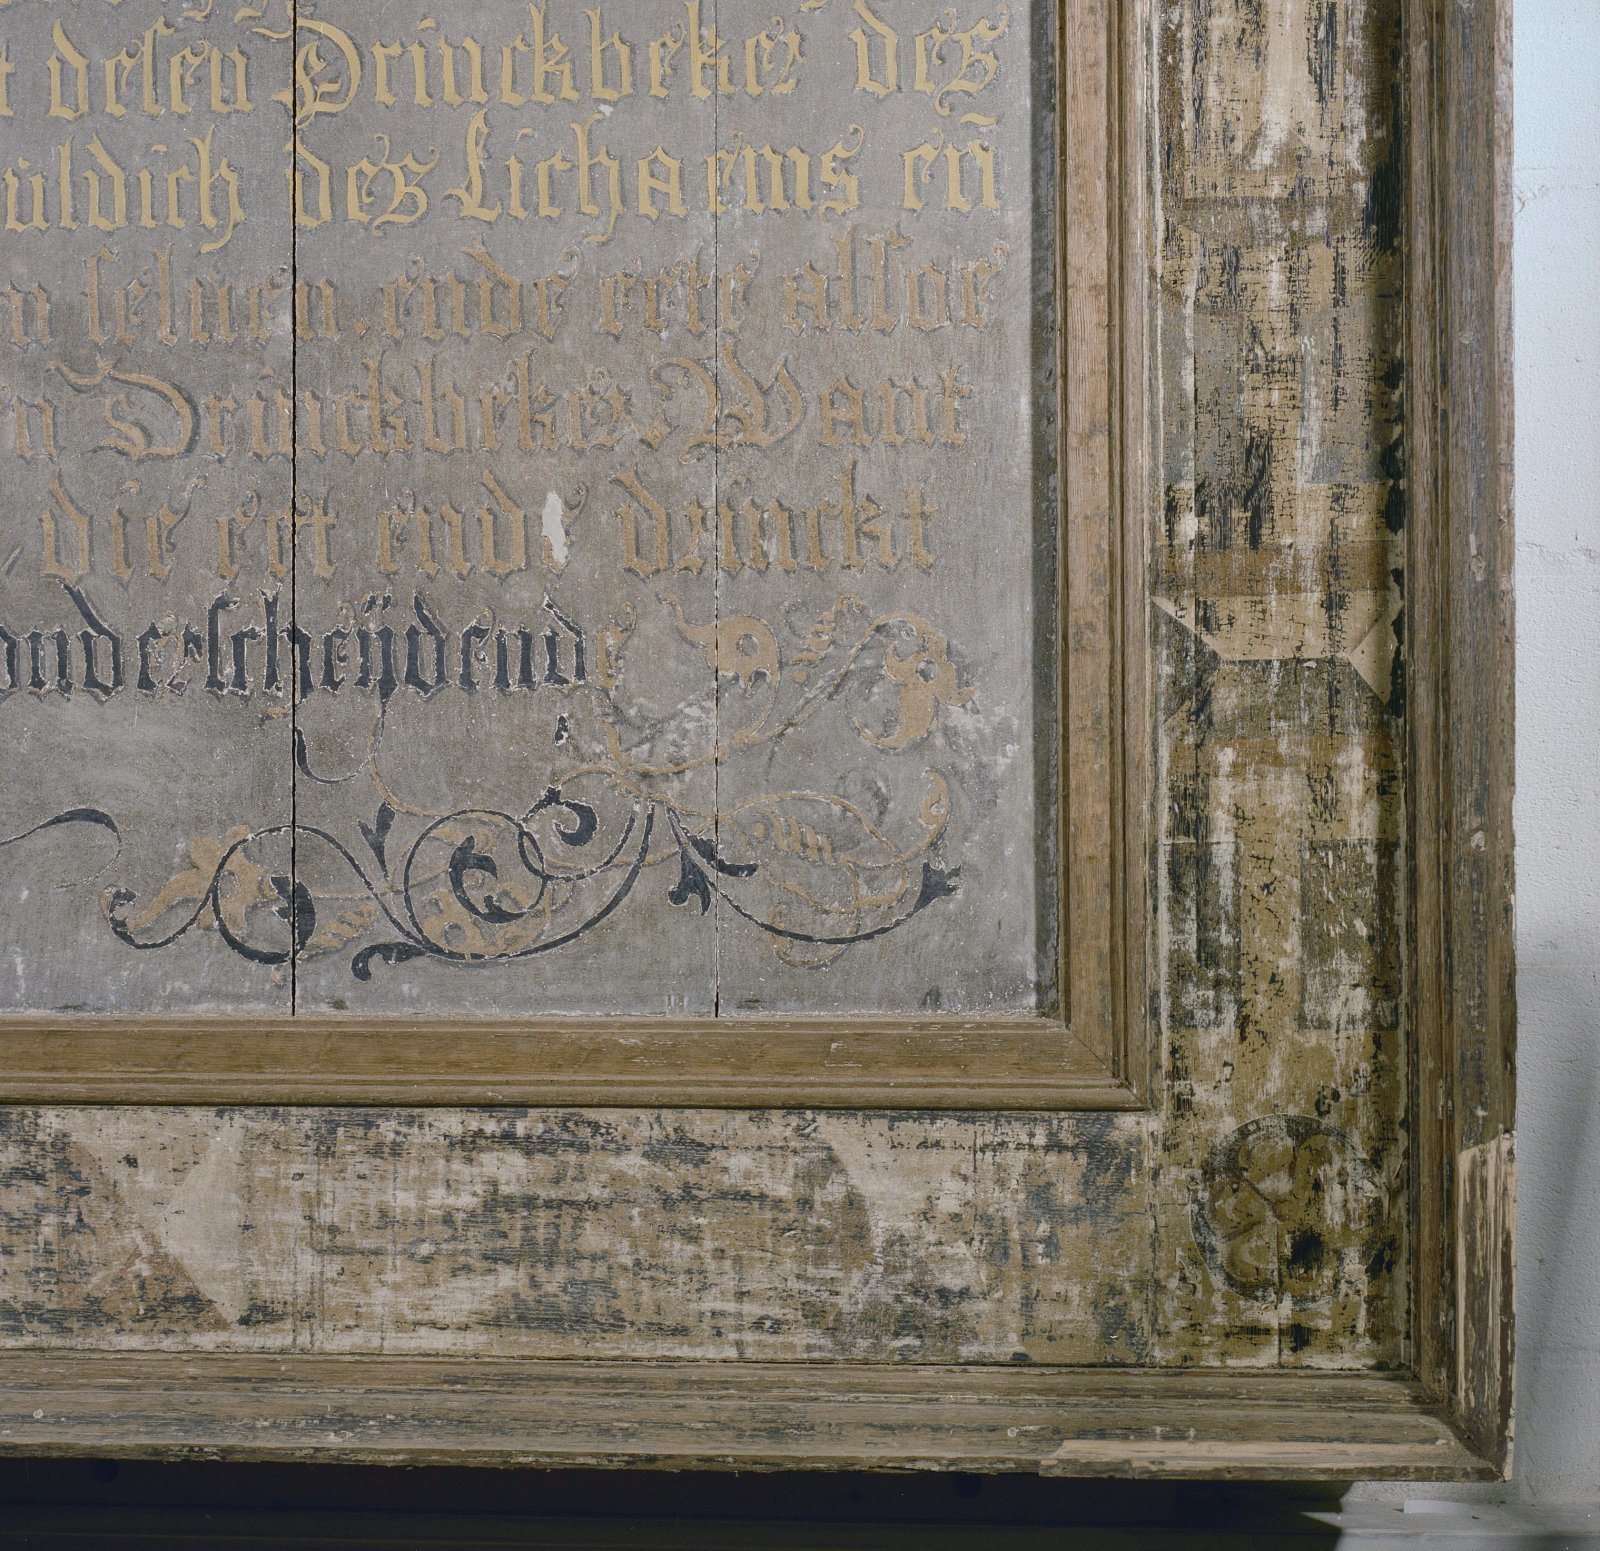 t desen Drinckbeker des
uldich des Lichaems en̄
n seluen. ende eete alsoe
n Drinckbeker. Want
, die eet ende drinckt
onderscheijdend